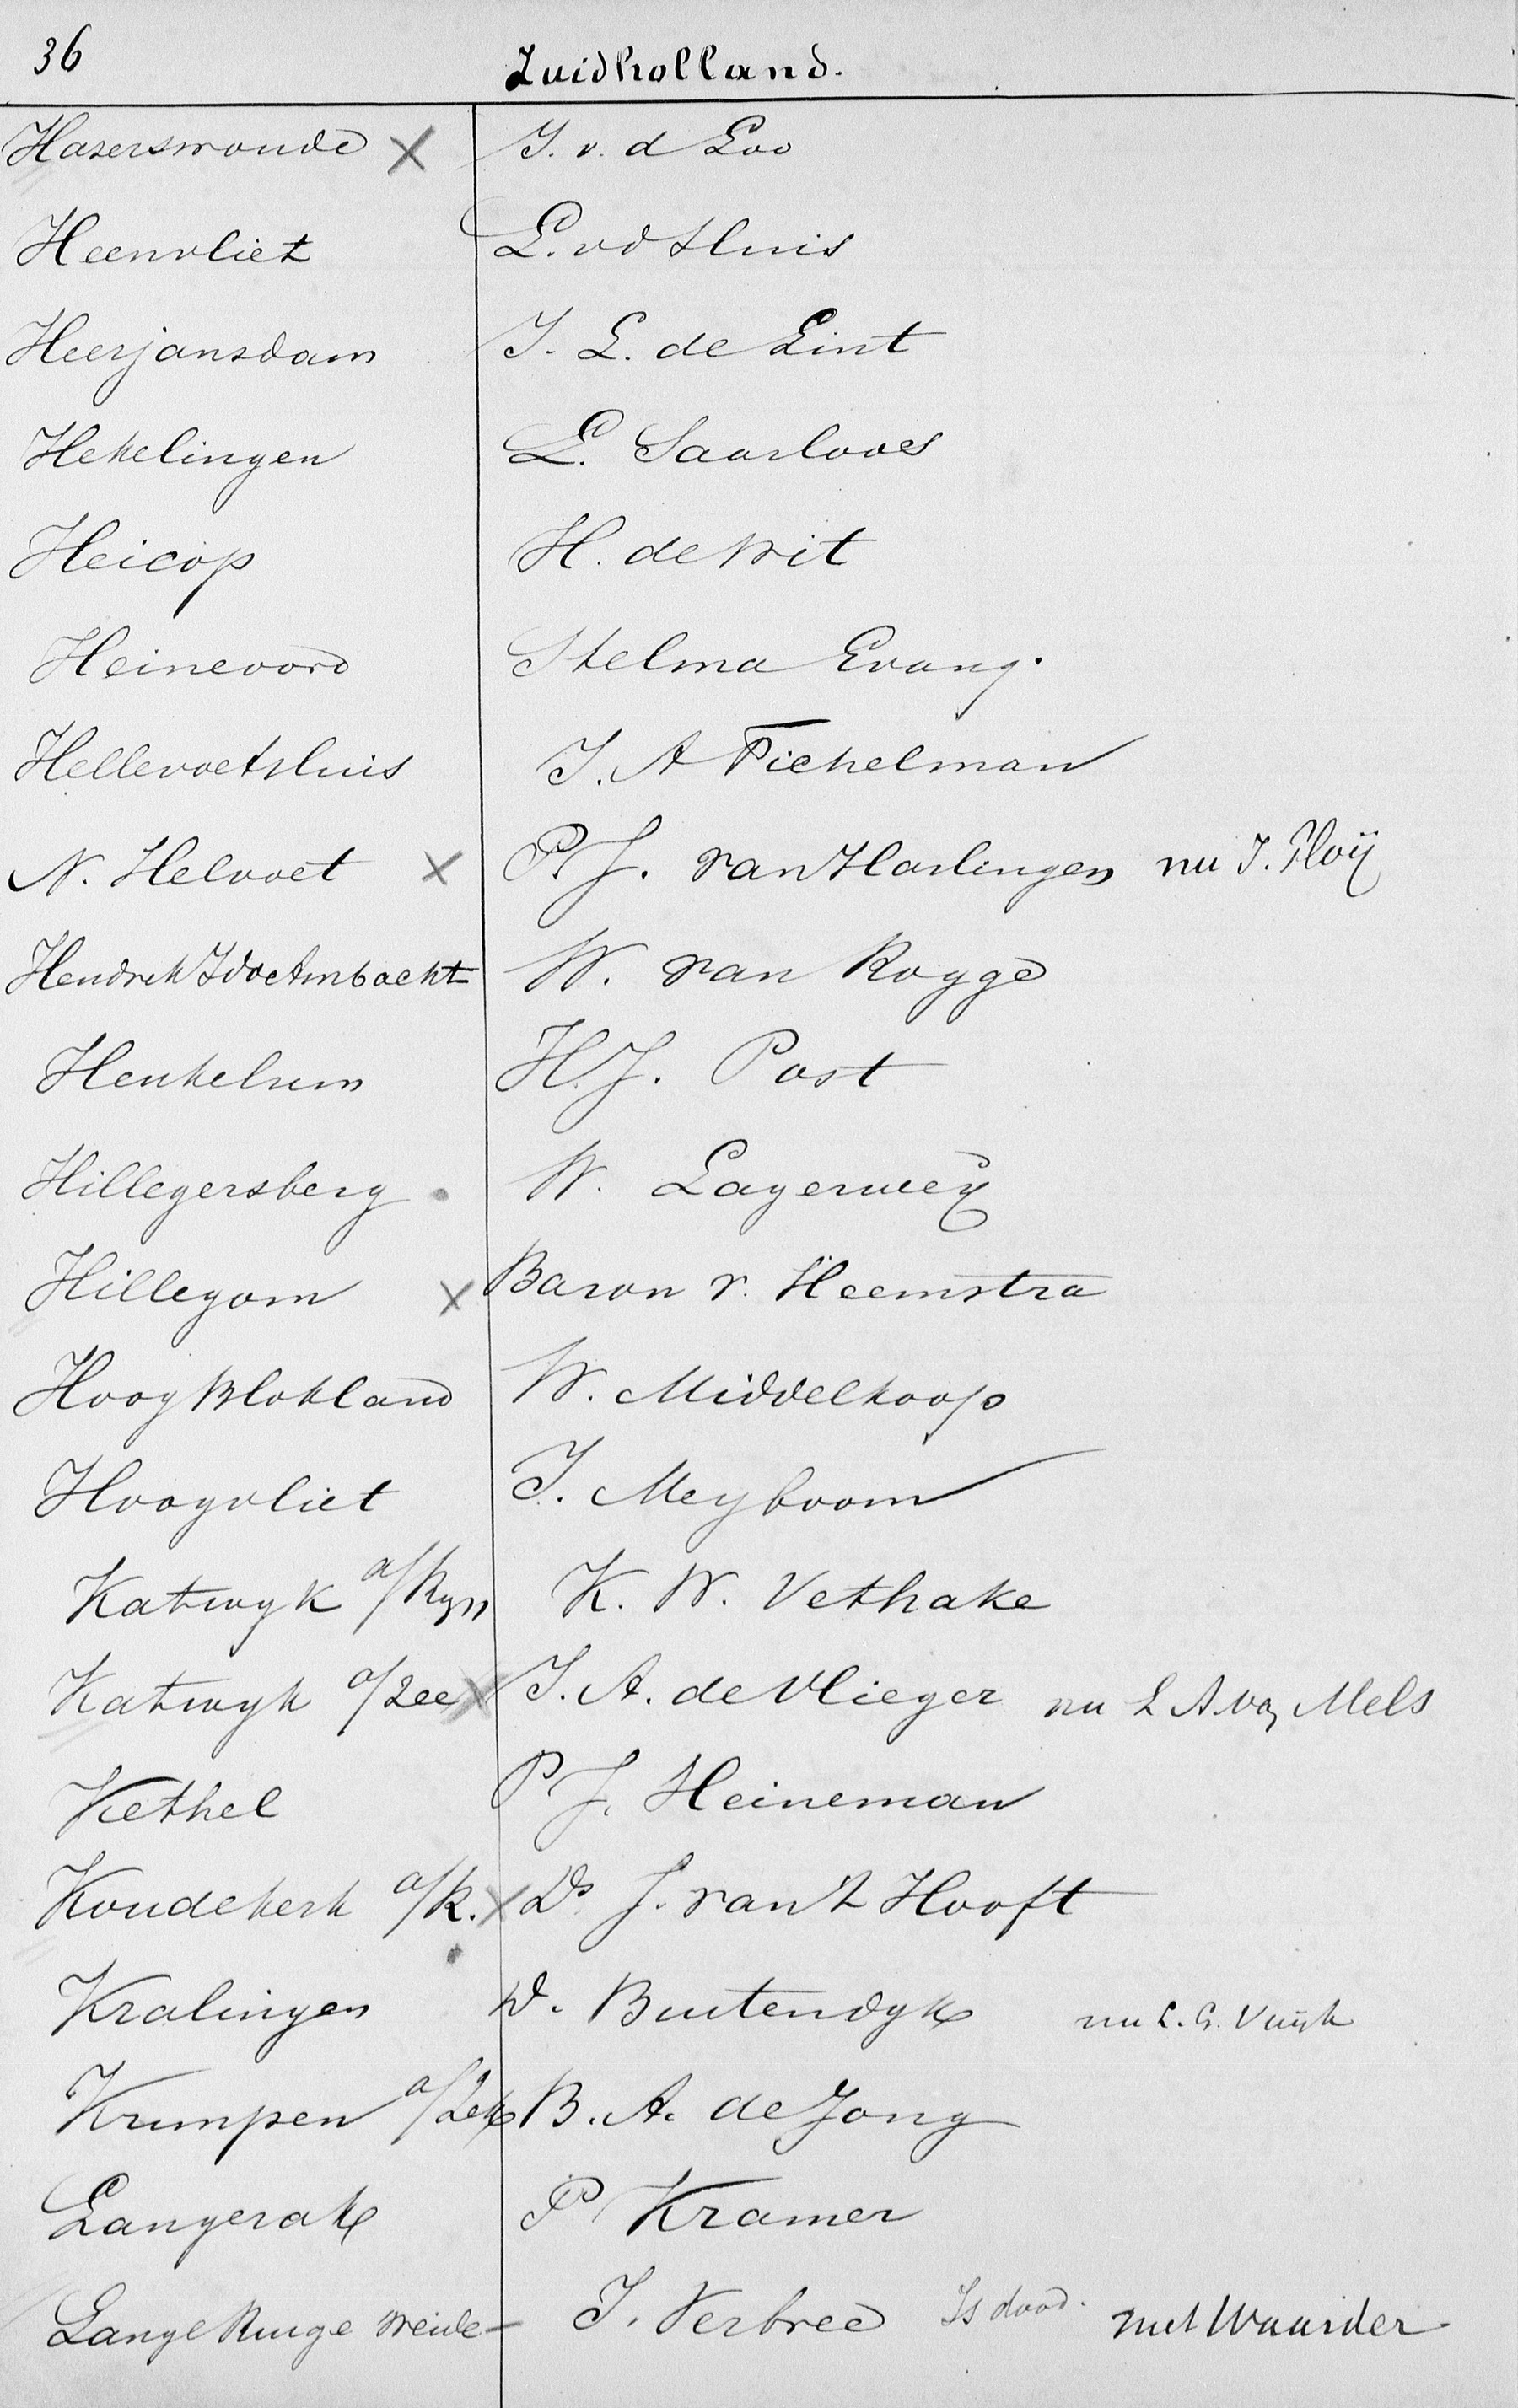 36
Zuidholland.
Hazerswoude X J. v. d Loo
Heenvliet L. vd Sluis
Heerjansdam J. L. de Lint
Hekelingen L. Saarloos
Heicop H. de Wit
Heinevoord Stelma Evang.
Hellevoetsluis J. A Fichelman
N. Helvoet X P. J. van Harlingen nu J. Ploij
Hendrek Ido Ambacht W. van Rogge
Heukelum H. J. Post
Hillegersberg W. Lagerweij
Hillegom X Baron v. Heemstra
Hoog Blokland W. Middelkoop
Hoogvliet J. Meyboom
Katwyk a/Ryn K. W. Vethake
Katwyk a/Zee X J. A. de Vlieger nu L A Mels
Kethel P J. Heineman
Koudekerk a/R. X Ds J. van 't Hooft
Kralingen D. Buitendyk nu L. G. Vuijk
Krimpen a/Lek B. A. de Jong
Langerak P Kramer
Lange Ruige Weide - J. Verbree Is dood. met Waarder